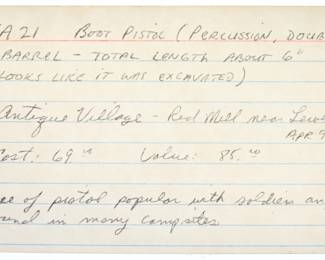 A 21 Boot Pistol (Percussion, Doub
Barrel - Total Length About 6"
Looks like it was excavated)
Antique Village - Red Mill near Lew
APR 9
Cost: 69 00 Value: 85.00
pe of pistol popular with soldiers an
ound in many campsites